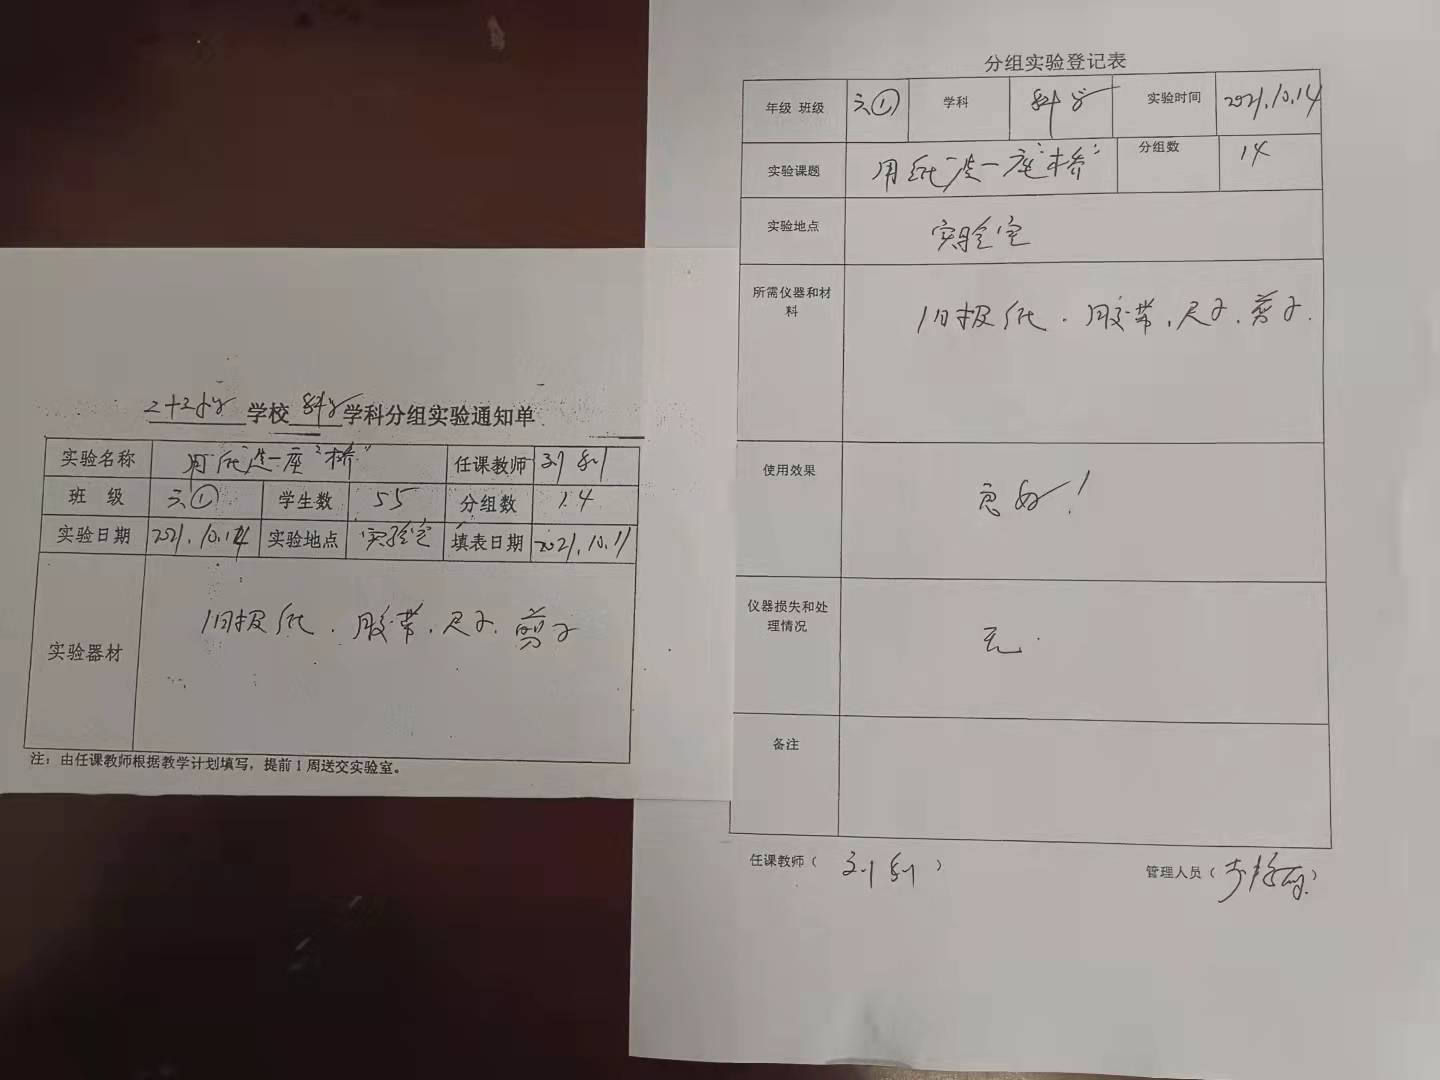 分组实验登记表
年级 班级 六① 学科 科学 实验时间 2021.10.14
实验课题 用纸造一座"桥" 分组数 14
实验地点 实验室
所需仪器和材料 旧报纸．胶带．尺子．剪子．
使用效果 良好！
仪器损失和处理情况 无．
备注
任课教师（ 刘 ） 管理人员（ 李 ）
学校 科学 学科分组实验通知单
实验名称 用纸造一座"桥" 任课教师 刘
班 级 六① 学生数 55 分组数 14
实验日期 2021.10.14 实验地点 实验室 填表日期 2021.10.11
实验器材 旧报纸．胶带．尺子．剪子
注：由任课教师根据教学计划填写，提前1周送交实验室。